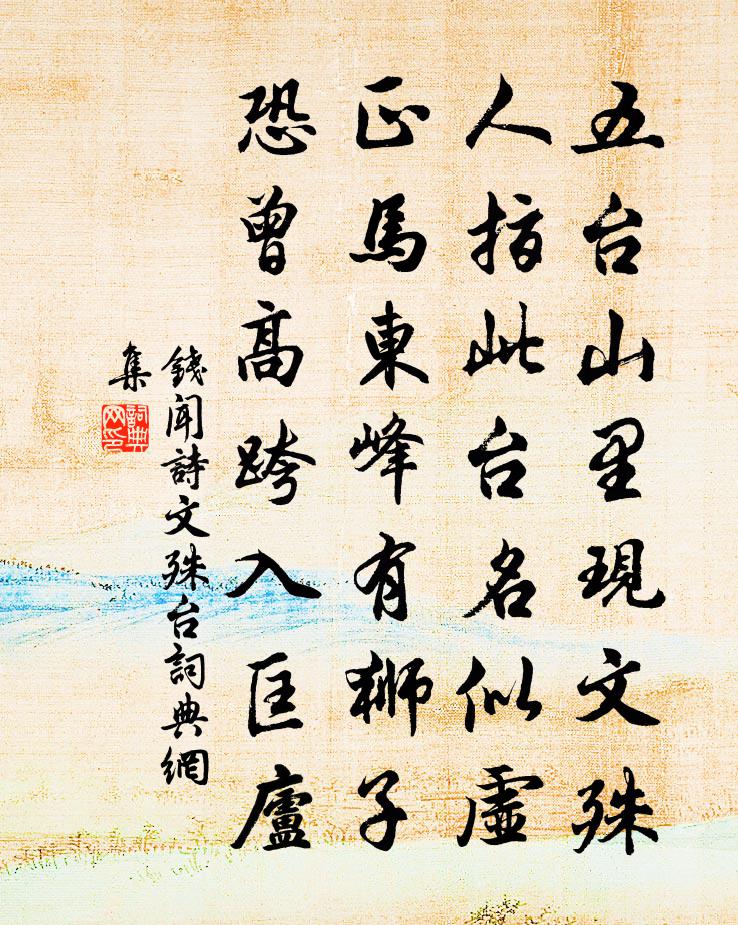 五台山里現文殊
人指此台名似虛
正馬東峰有獅子
恐曾高跨入匡廬
錢聞詩文殊台詞典網
集
詞典
网印